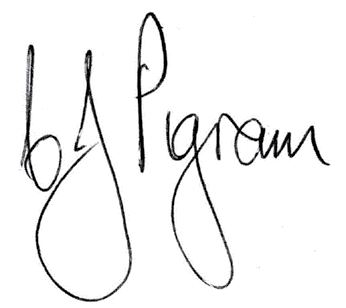 bJ Pigram